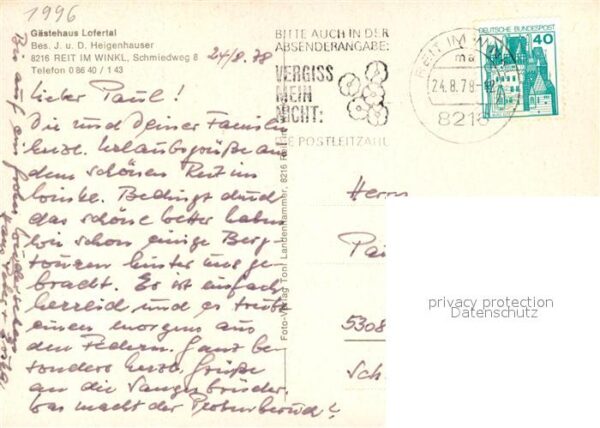 1996
Gästehaus Lofertal
Bes. J. u. D. Heigenhauser
8216 REIT IM WINKL, Schmiedweg 8
Telefon 0 86 40 / 143
24/8.78
Lieber Paul!
Dir und Deiner Familie
herzl. Urlaubsgrüße aus
dem schönen Reit im
Winkl. Bedingt durch
das schöne Wetter haben
wir schon einige Berg-
touren hinter uns ge-
bracht. Es ist einfach
herrlich und es treibt
einen morgens aus
den Federn. Ganz be-
sonders herzl. Grüße
an die Sangesbrüder.
Was macht der
Bis auf ein
Foto-Verlag Toni Landenhammer, 8216 Reit
BITTE AUCH IN DER
ABSENDERANGABE:
VERGISS
MEIN
NICHT:
DIE POSTLEITZAHL
REIT IM WINKL
ma
24.8.78-12
8216
DEUTSCHE BUNDESPOST
40
Herrn
Pa
5308
Sch
privacy protection
Datenschutz